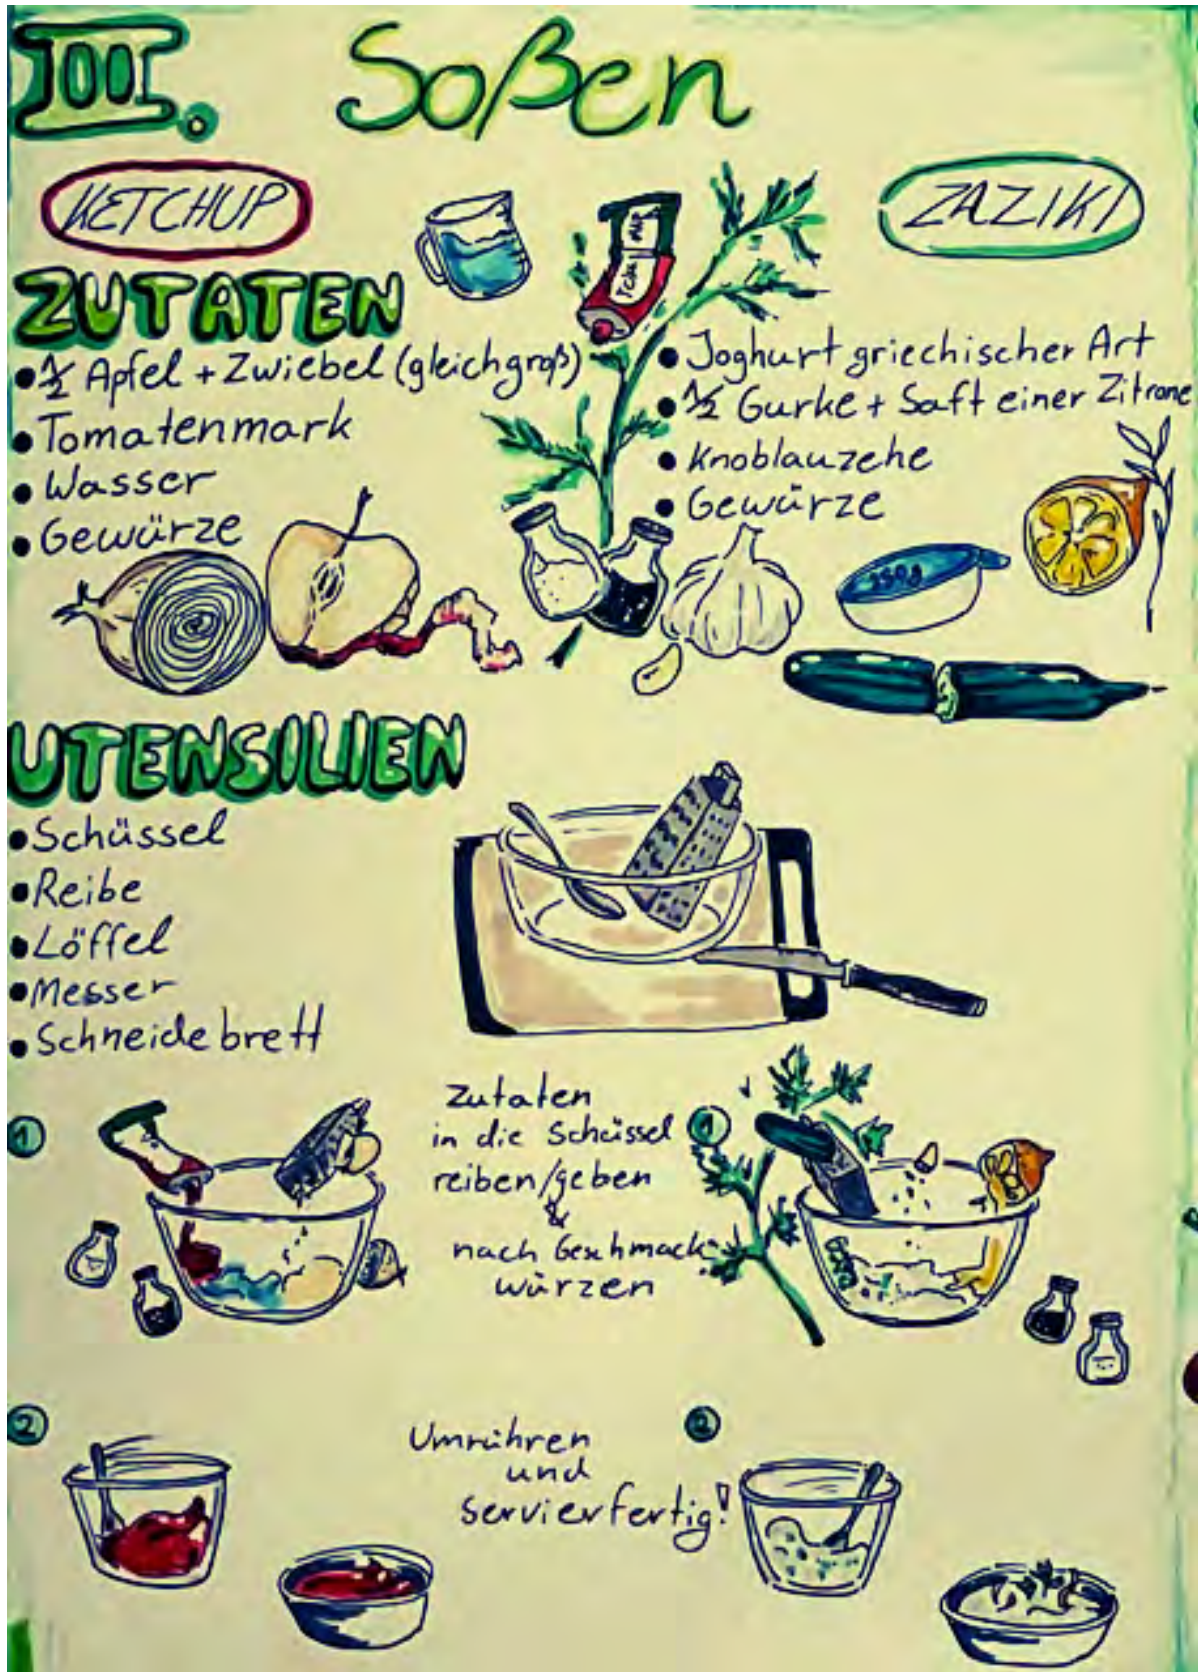 III. Soßen
KETCHUP
ZAZIKI
ZUTATEN
• 1/2 Apfel + Zwiebel (gleichgroß)
• Tomatenmark
• Wasser
• Gewürze
• Joghurt griechischer Art
• 1/2 Gurke + Saft einer Zitrone
• Knoblauzehe
• Gewürze
150g
UTENSILIEN
• Schüssel
• Reibe
• Löffel
• Messer
• Schneidebrett
1
Zutaten
in die Schüssel
reiben/geben
&
nach Geschmack
würzen
1
2
Umrühren
und
servierfertig!
2